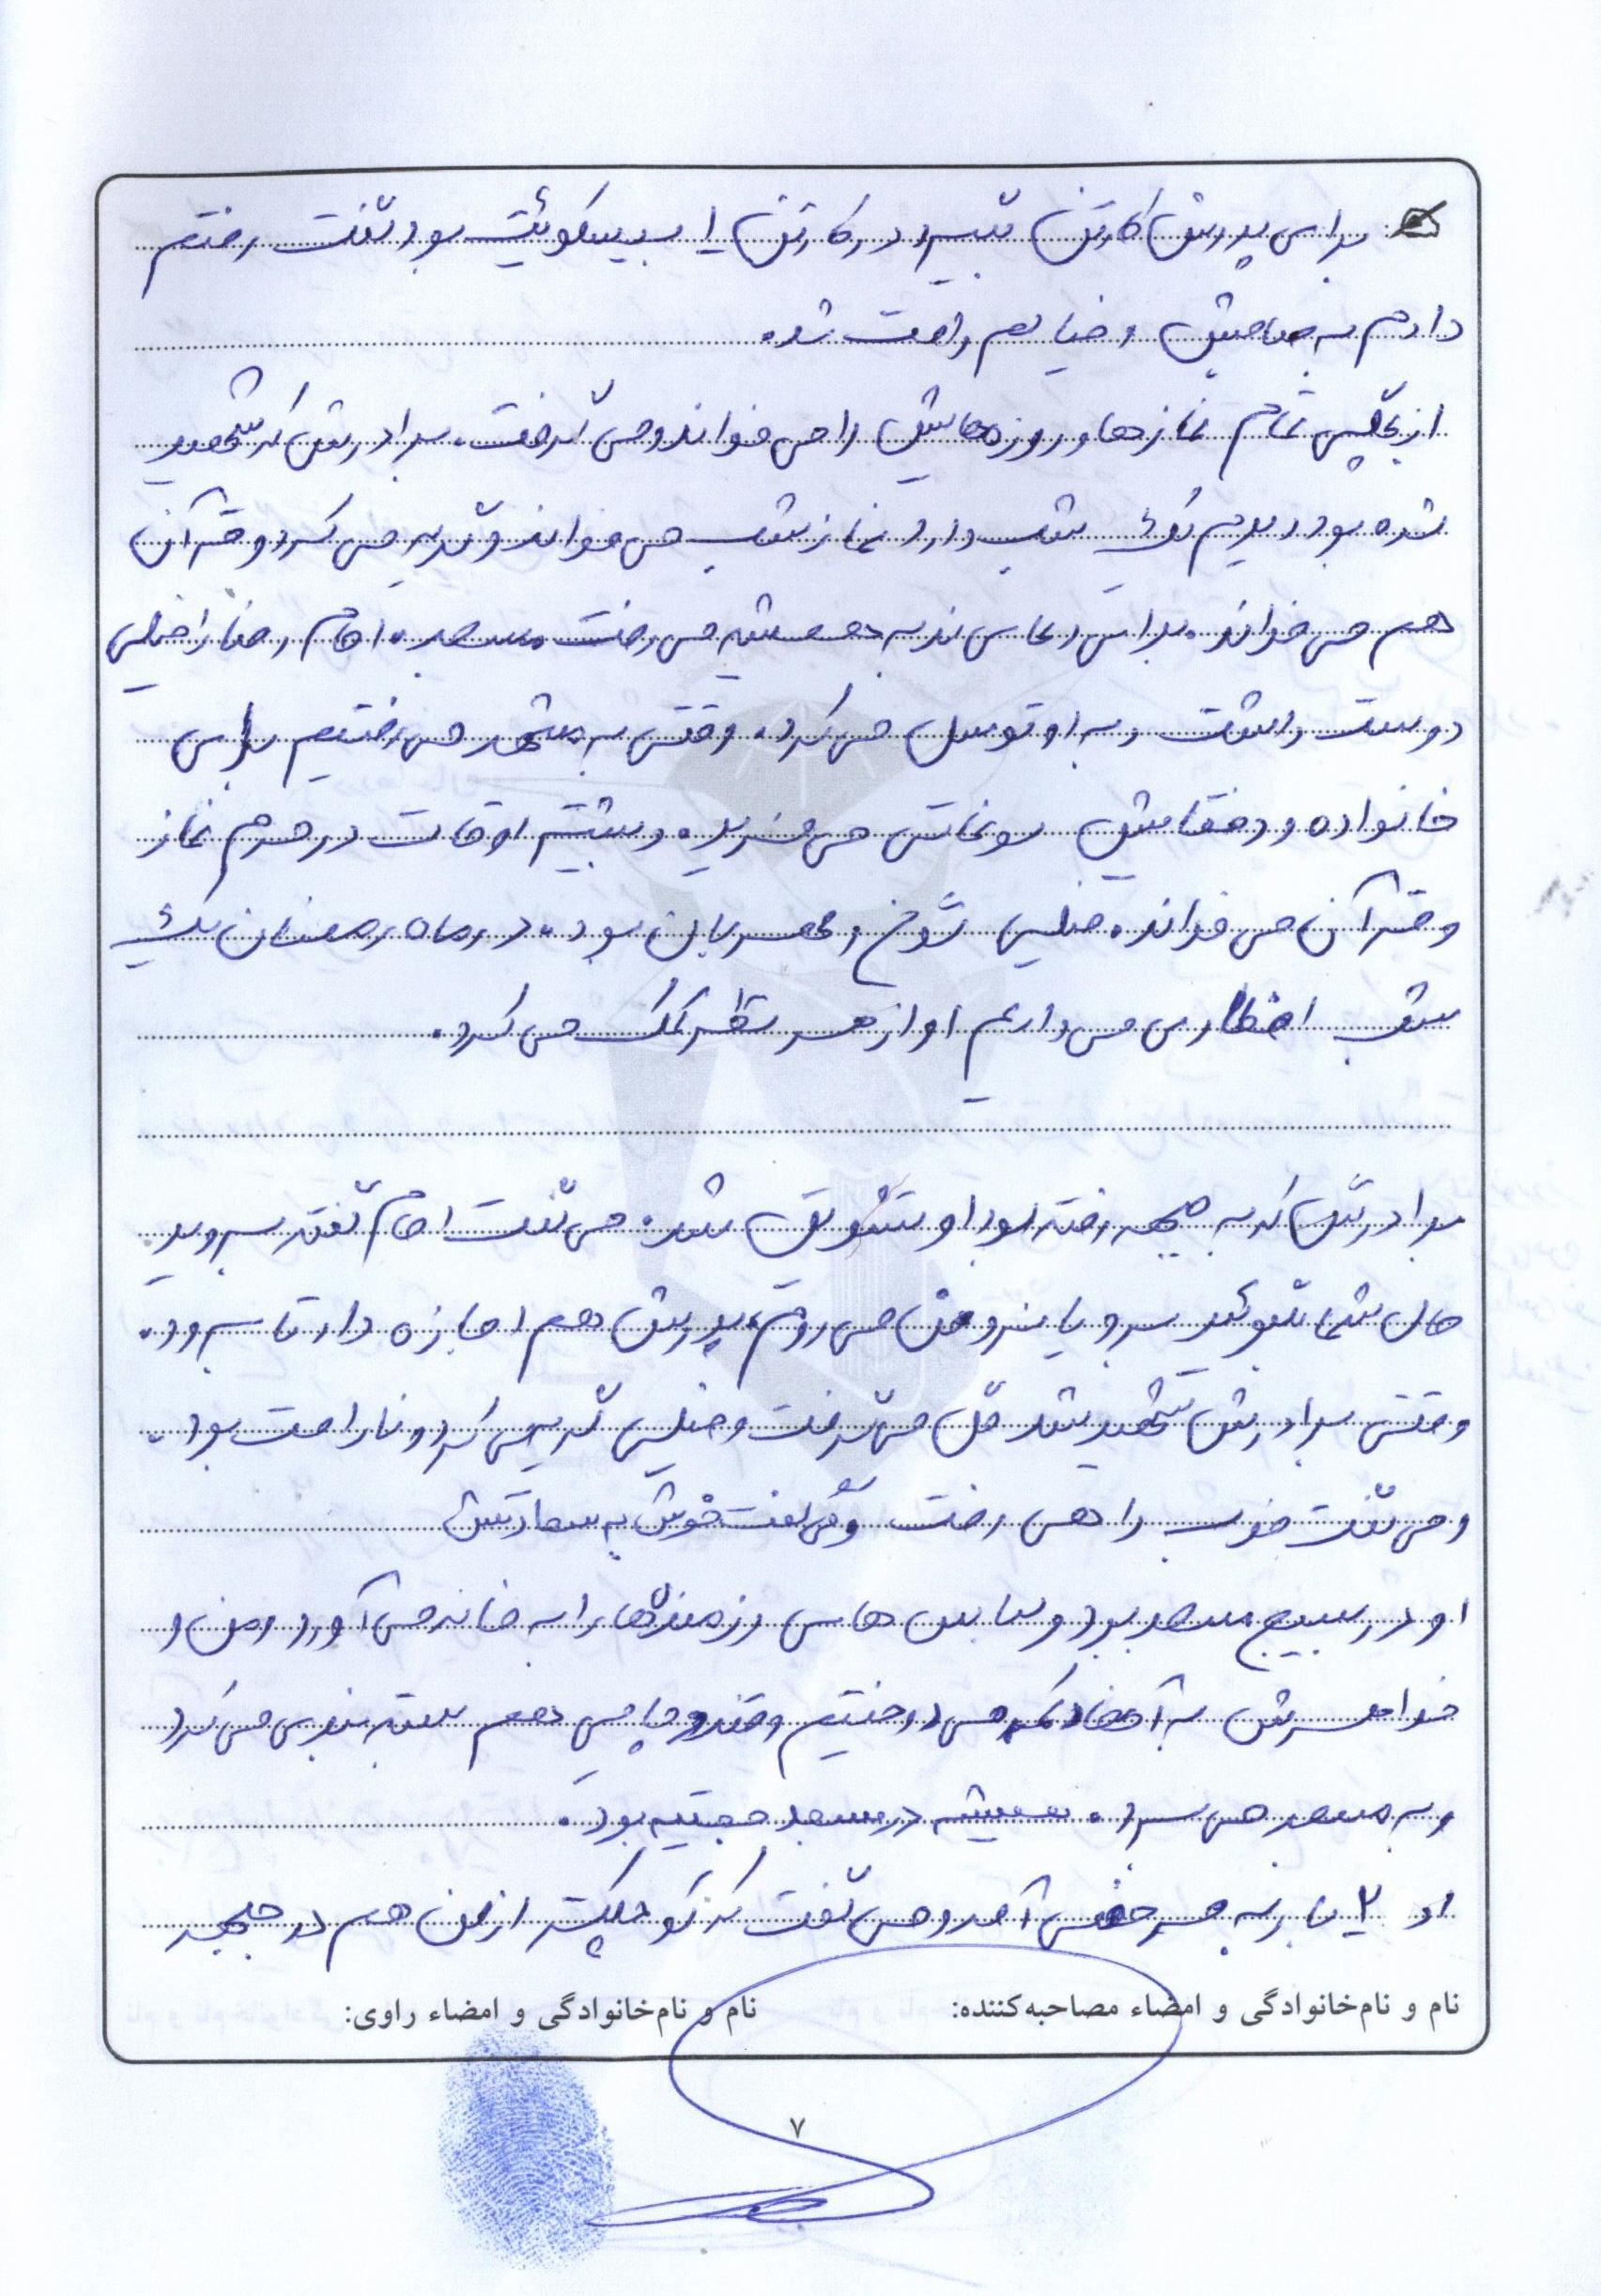 برای پدرش کارتن بگیرد در کارتن ۱ بیسکوئیت بود گفت رفتم
دادم به صاحبش و خیالم راحت شد.
از بچگی تمام نمازها و روزه هایش را می خواند و می گرفت. برادرش که شهید
شده بود دیدم یک شب دارد نماز شب می خواند و گریه می کرد و قرآن
هم می خواند. برای دعای ندبه همیشه می رفت مسجد. امام رضا را خیلی
دوست داشت و به او توسل می کرد. وقتی به مشهد می رفتیم برای
خانواده و رفقایش سوغاتی می خرید. و بیشتر اوقات در حرم نماز
و قرآن می خواند. خیلی شوخ و مهربان بود. در ماه رمضان یک
شب افطاری می دادیم او از هر نظر کمک می کرد.
برادرش که به جبهه رفته بود او تشویق شد. می گفت امام گفته بروید
حال شما بگوئید برو یا نرو من می روم، پدرش هم اجازه داد تا برود.
وقتی برادرش شهید شد گل می گرفت و خیلی گریه می کرد و ناراحت بود.
و می گفت خوب راهی رفت و می گفت خوش به سعادتش
او در بسیج مسجد بود و لباس های رزمنده ها را به خانه می آورد و من و
خواهرش به آنها دکمه می دوختیم و قند و چای هم بسته بندی می کرد
و به مسجد می برد. همیشه در مسجد حجتیه بود.
او ۲ بار به مرخصی آمد و می گفت که کوچکتر از من هم در جبهه
نام و نام‌خانوادگی و امضاء مصاحبه‌کننده: نام و نام‌خانوادگی و امضاء راوی:
۷